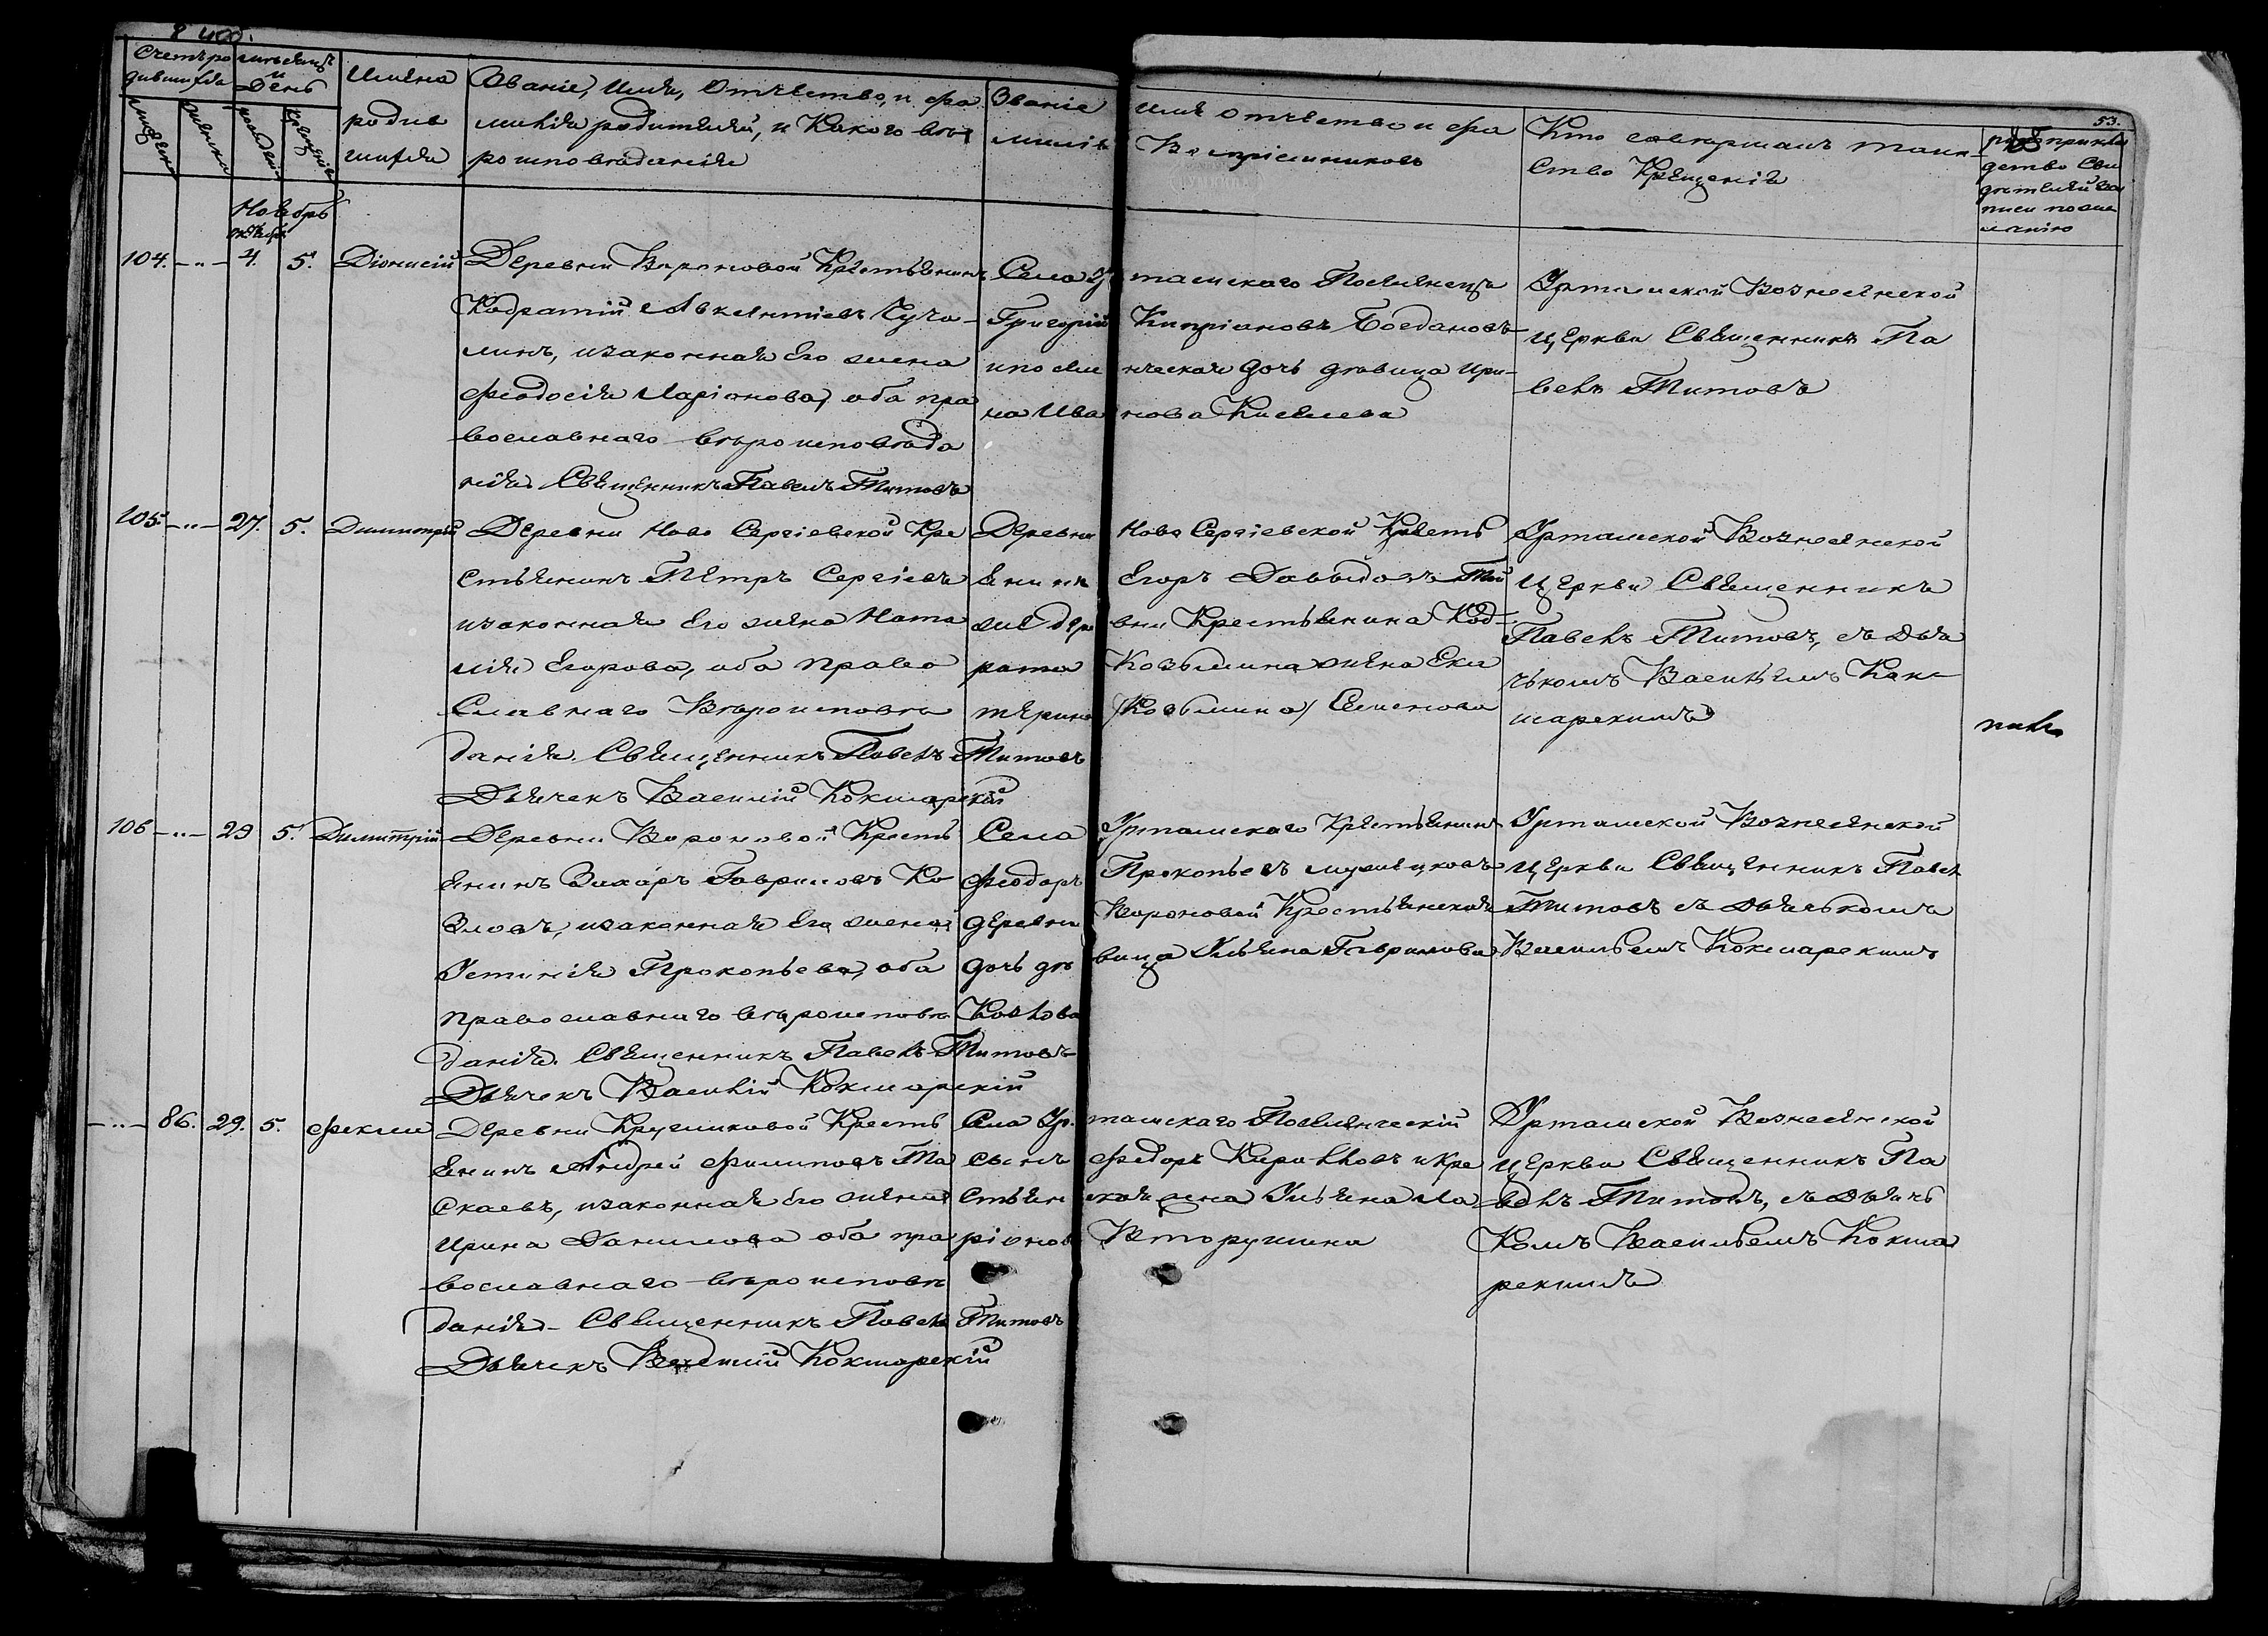 400.
53.
Счетъ ро
дившихся
Мѣсяцъ
и
День
Имена
родив
шихся
Званіе, Имя, Отчество, и фа
милія родителей, и Какого вѣ
роисповѣданія
Званіе
милія
имя отчество и фа
Воспріемниковъ
Кто совершалъ таин-
ство Крещенія
рукоприкла
детво Сви
дѣтелей за
писи по же
ланію
мужеска
женска
рожденія
Крещенія
Ноябрь
октябрь
104. -"- 4. 5. Діонисій
Деревни Вороновой Крестьянинъ
Кодратій Авксентіевъ Чуча-
линъ, изаконная Его жена
Феодосія Ларіонова, оба пра
вославнаго вѣроисповѣда
нія Священникъ Павелъ Титовъ
Села Ур
таmскаго Поселенецъ
Григорій
Кипріановъ Богдановъ
ипоселе
нческая дочь дѣвица Ири-
на Ива
нова Киселева
Урташской Вознесенской
Церкви Священникъ Па
велъ Титовъ
105. -"- 27. 5. Димитрій
Деревни Ново Сергіевской Кре
стьянинъ Петръ Сергіевъ
изаконная Его жена Ната
лія Егорова, оба право
Славнаго Вѣроисповѣ
данія. Священникъ Павелъ Титовъ
Дьячекъ Василій Кокшарскій
Деревни
Ново Сергіевской Кресть
янинъ
Егоръ Давыдовъ Той
же дере
вни Крестьянина Код-
рата
Козьмина жена Ека
терина
/Козьмина/ Семенова
Урташской Вознесенской
Церкви Священникъ
Павелъ Титовъ, съ Дья
чькомъ Васильемъ Кок-
шарскимъ
106 -"- 29 5. Димитрій
Деревни Вороновой Кресть
янинъ Захаръ Гавриловъ Ко
зловъ, изаконная Его жена
Устинія Прокопьева, оба
православнаго вѣроисповѣ
данія. Священникъ Павелъ Титовъ
Дьячекъ Василій Кокшарскій
Села
Урташскаго Крестьянинъ
Феодоръ
Прокопьевъ
деревни
Вороновой Крестьянская
дочь дѣ
вица Ульяна Гаврилова
Козлова
Урташской Вознесенской
Церкви Священникъ Павелъ
Титовъ съ Дьячькомъ
Васильемъ Кокшарскимъ
-"- 86. 29. 5. Фекла
Деревни Кругликовой Кресть
янинъ Андрей Филиповъ Та
скаевъ, изаконная Его жена
Ирина Данилова оба пра
вославнаго вѣроисповѣ
данія - Священникъ Павелъ Титовъ
Дьячекъ Василій Кокшарскій
Села Ур.
ташскаго Поселенческій
сынъ
Федоръ Кириловъ и Кре
стьян
ская жена Ульяна Ла
ріонова
Вторушина
Урташской Вознесенской
Церкви Священникъ Па
велъ Титовъ, съ Дьячь
комъ Васильемъ Кокша
рскимъ